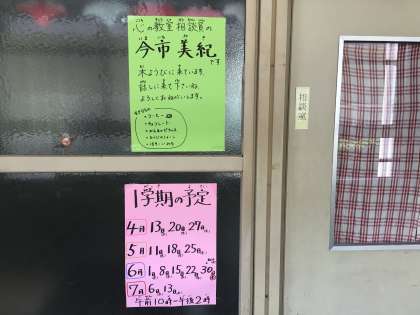 心の教室相談員の
今市 美紀
です
木ようびに来ています
話しに来て下さいね
よろしくおねがいします。
・コーヒー
・チョコレート
相談室
1学期の予定
4月 13日 20日 27日
5月 11日 18日 25日
6月 1日 8日 15日 22日 30日
7月 6日 13日
午前10時~午後2時